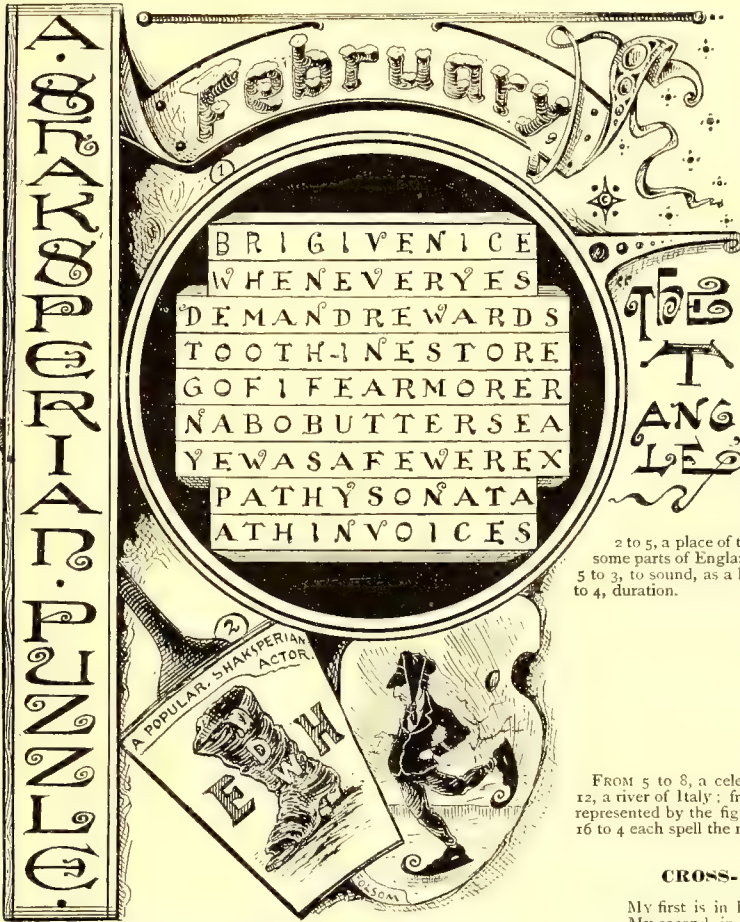 A · SHAKSPERIAN · PUZZLE ·
February
1
BRIGIVENICE
WHENEVERYES
DEMANDREWARDS
TOOTH-INESTORE
GOFIFEARMORER
NABOBUTTERSEA
YEWASAFEWEREX
PATHYSONATA
ATHINVOICES
THE
T
ANG
LES
2 to 5, a place of t
some parts of Engla
5 to 3, to sound, as a
to 4, duration.
2
A POPULAR · SHAKSPERIAN
ACTOR
E D W H
FROM 5 to 8, a cele
12, a river of Italy ; fr
represented by the fig
16 to 4 each spell the
CROSS-
My first is in